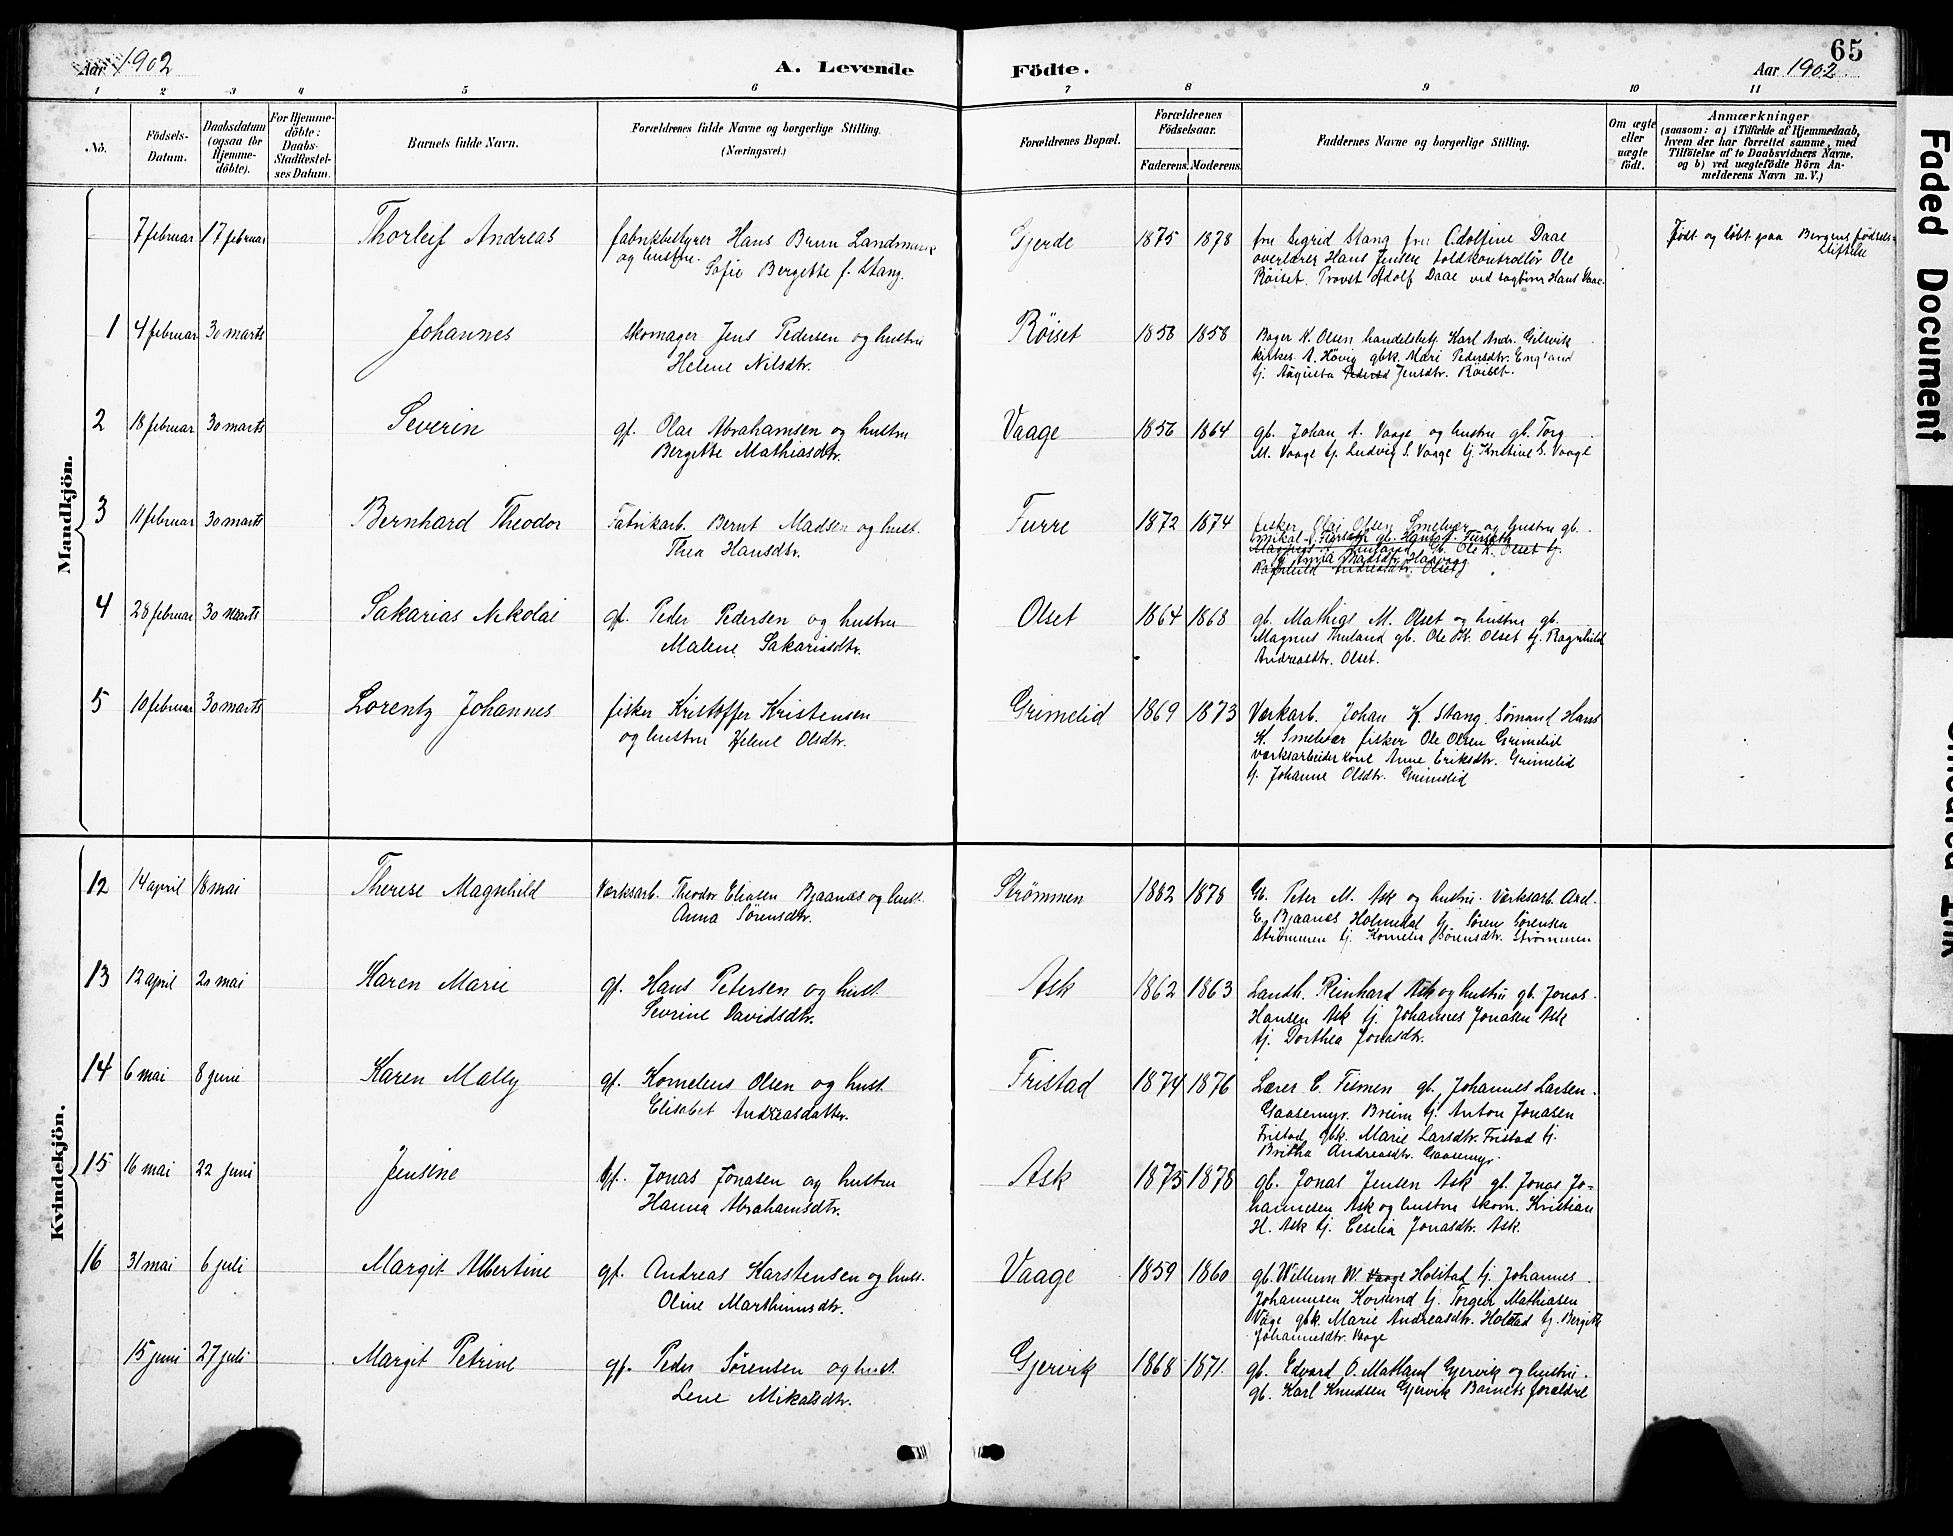 65
Aar 1902
A. Levende
Födte.
Aar 1902.
1 2 3 4 5 6 7 8 9 10 11
No.
Födsels-Datum.
Daabsdatum (ogsaa for Hjemme-döbte).
For Hjemme-döbte: Daabs-Stadfæstel-ses Datum.
Barnets fulde Navn.
Forældrenes fulde Navne og borgerlige Stilling. (Næringsvei.)
Forældrenes Bopæl.
Forældrenes Födselsaar.
Faderens. Moderens.
Faddernes Navne og borgerlige Stilling.
Om ægte eller uægte födt.
Anmærkninger
(saasom: a) i Tilfælde af Hjemmedaab,
hvem der har forrettet samme, med
Tilföielse af to Daabsvidners Navne,
og b) ved uægtefödte Börn An-
melderens Navn m. V.)
Mandkjön.
7 februar 17 februar Thorleif Andreas fabrikbestyrer Hans Brun Landmark Gjerde 1875 1878 fru Sigrid Stang fru Adolfine Daae Födt og döbt paa Bergens födsels-
og hustru Sofie Bergette f. Stang. overlærer Hans Jensen toldkontrollör Ole stiftelse
Röiset. Provst Adolf Daae ved sagförer Hans Vaae.
1 4 februar 30 marts Johannes skomager Jens Pedersen og hustru Röiset 1858 1858 Bager K. Olsen handelsbetj. Karl Andr. Gilsvik
Helene Nilsdtr. kirkes. A. Hövig gbk. Mari Pedersdtr. England
tj. Augusta Jensdtr. Röiset.
2 18 februar 30 marts Severin gf. Olai Abrahamsen og hustru Vaage 1856 1864 gb. Johan A. Vaage og hustru gb. Torg
Bergette Mathiasdtr. M. Vaage tj. Ludvig S. Vaage tj. Kristine S. Vaage
3 11 februar 30 marts Bernhard Theodor Fabrikarb. Bernt Madsen og hust. Furre 1872 1874 fisker Olai Olsen Smelvær og hustru gb.
Thea Hansdtr. Mikal
Ole K. Olset tj.
Ragnhild Andreasdtr. Olset
4 28 februar 30 marts Sakarias Nikolai gf. Peder Pedersen og hustru Olset 1864 1868 gb. Mathias M. Olset og hustru gb.
Malene Sakariasdtr. Magnus Thuland gb. Ole K. Olset tj. Ragnhild
Andreasdtr. Olset.
5 10 februar 30 marts Lorentz Johannes fisker Kristoffer Kristensen Grimelid 1869 1873 Værkarb. Johan K. Stang. Sömand Hans
og hustru Helene Olsdtr. K. Smelvær fisker Ole Olsen Grimelid
værksarbeider kone Anne Eriksdtr. Grimelid
tj. Johanne Olsdtr. Grimelid
Kvindekjön.
12 14 april 18 mai Therese Magnhild Værksarb. Theodor Eliasen Bjaanæs og hust. Strömmen 1882 1878 Gb. Peter M. Ask og hustru. Værksarb. Axel
Anna Sörensdtr. E. Bjaanæs Holmedal tj. Sören Sörensen
Strömmen tj. Kornelia Sörensdtr. Strömmen
13 12 april 20 mai Karen Marie gf. Hans Petersen og hust. Ask 1862 1863 Landh. Reinhard Ask og hustru gb. Jonas
Severine Davidsdtr. Hansen Ask tj. Johannes Jonasen Ask
tj. Dorthea Jonasdtr.
14 6 mai 8 juni Karen Mally gf. Kornelius Olsen og hust. Fristad 1874 1876 Lærer E. Tesmen gb. Johannes Larsen
Elisabet Andreasdatter. Gaasemyr. Breim tj. Anton Jonasen
Fristad gbk. Marie Larsdtr. Fristad tj.
Britha Andreasdtr. Gaasemyr.
15 16 mai 22 juni Jensine bf. Jonas Jonasen og hustru Ask 1875 1878 gb. Jonas Jensen Ask gb. Jonas Jo-
Hanna Abrahamsdtr. hannesen Ask og hustru skom. Kristian
H. Ask tj. Cesilia Jonasdtr. Ask.
16 31 mai 6 juli Margit Albertine gf. Andreas Karstensen og hust. Vaage 1859 1860 gb. Willum W. Vaage Holstad tj. Johannes
Oline Marthinusdtr. Johannesen Korsund tj. Torger Mathiasen
Våge gbk. Marie Andreasdtr. Holstad tj. Bergitte
Johannesdtr. Vaage
15 juni 27 juli Margit Petrine gf. Peder Sörensen og hust. Gjervik 1868 1871. gb. Edvard O. Matland Gjervik og hustru.
Lene Mikalsdtr. gb. Karl Knudsen Gjervik Barnets forældre
Faded Document
Smeared Ink